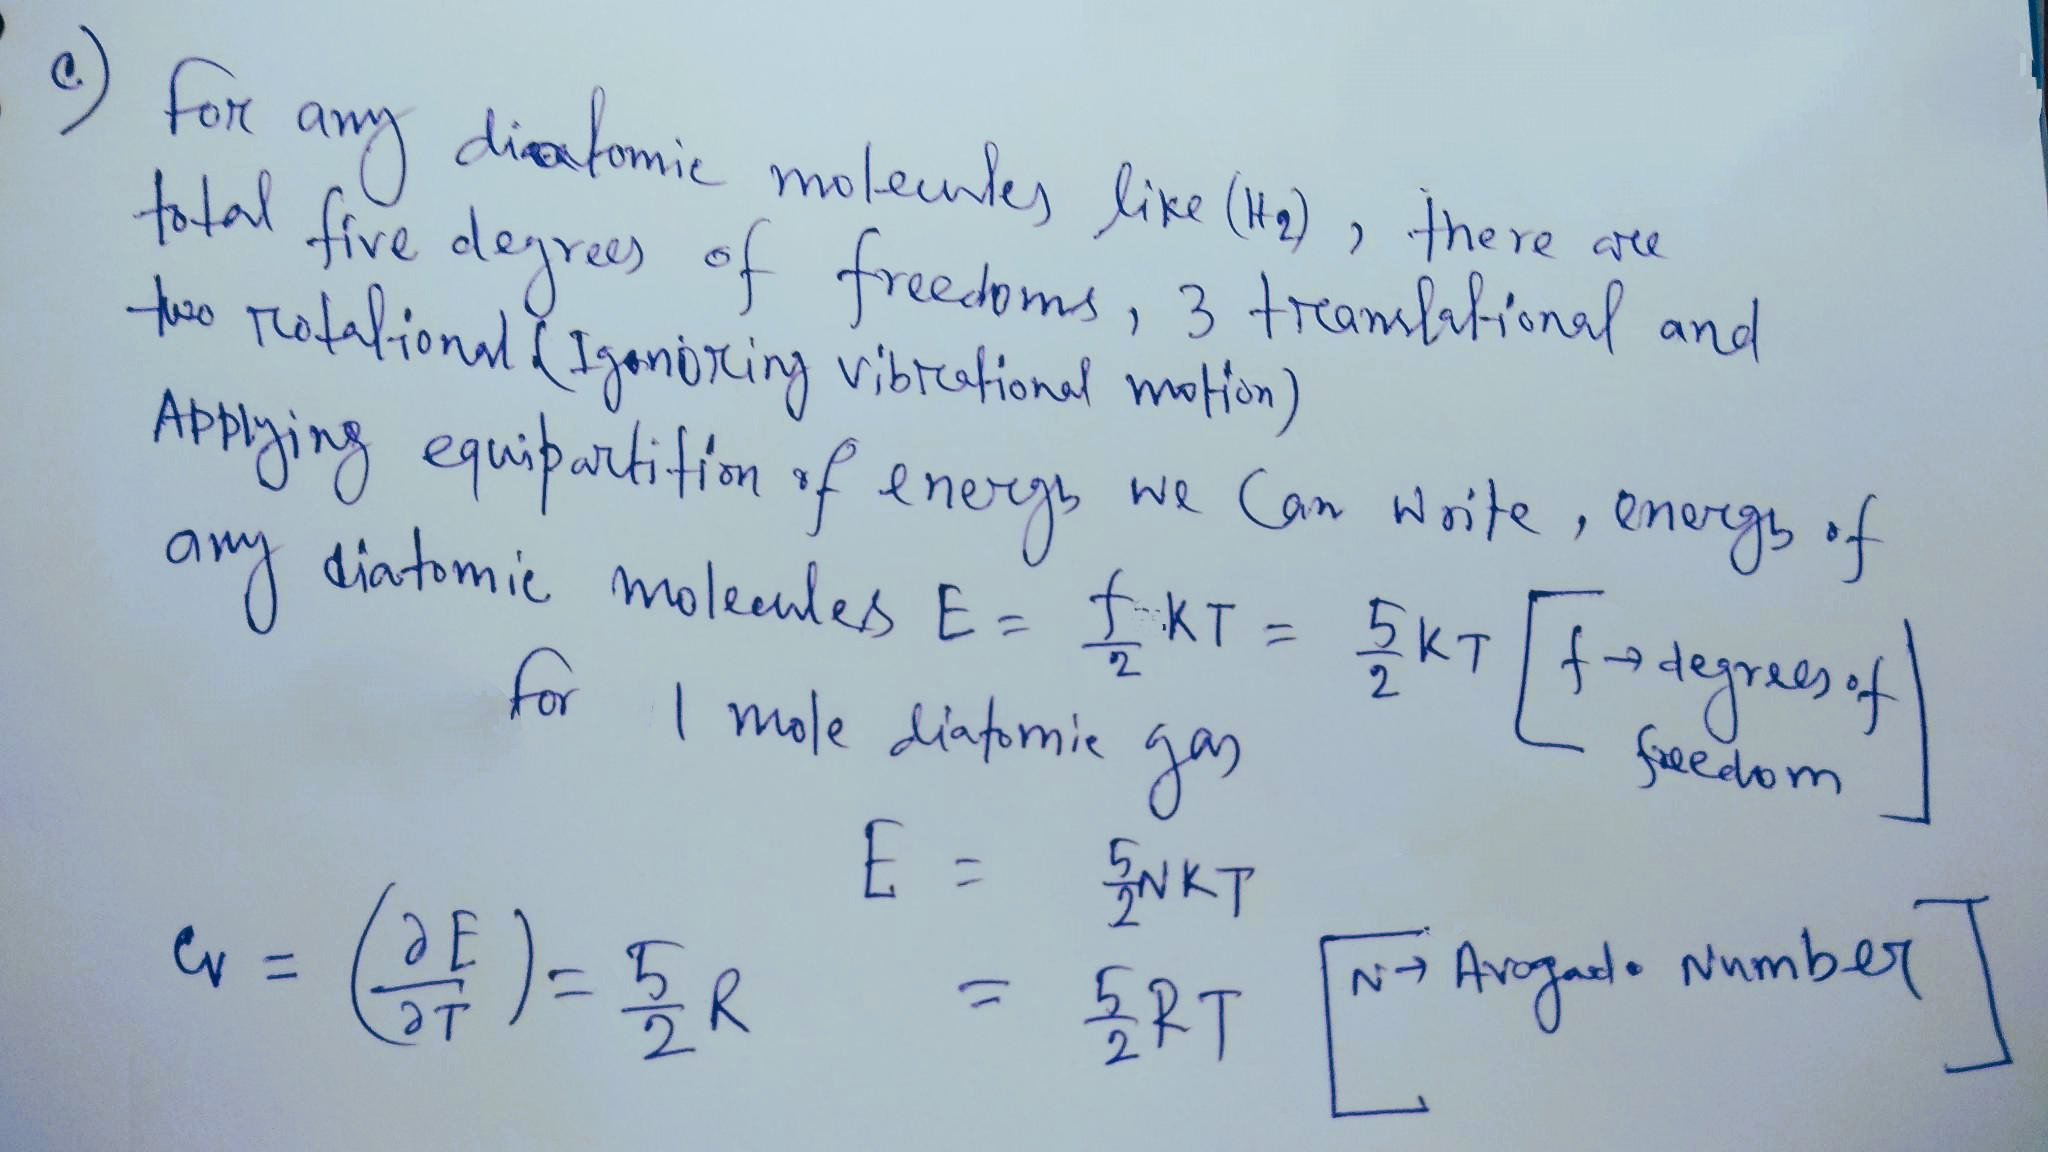 c) for any diatomic molecules like (H2), there are
total five degrees of freedoms, 3 translational and
two rotational (Igonoring vibrational motion)
Applying equipartition of energy we Can Write, energy of
any diatomic molecules E = f/2 KT = 5/2 KT [f → degrees of freedom]
for 1 mole diatomic gas
E = 5/2 NKT
= 5/2 RT [N → Avogado Number]
Cv = (∂E/∂T) = 5/2 R